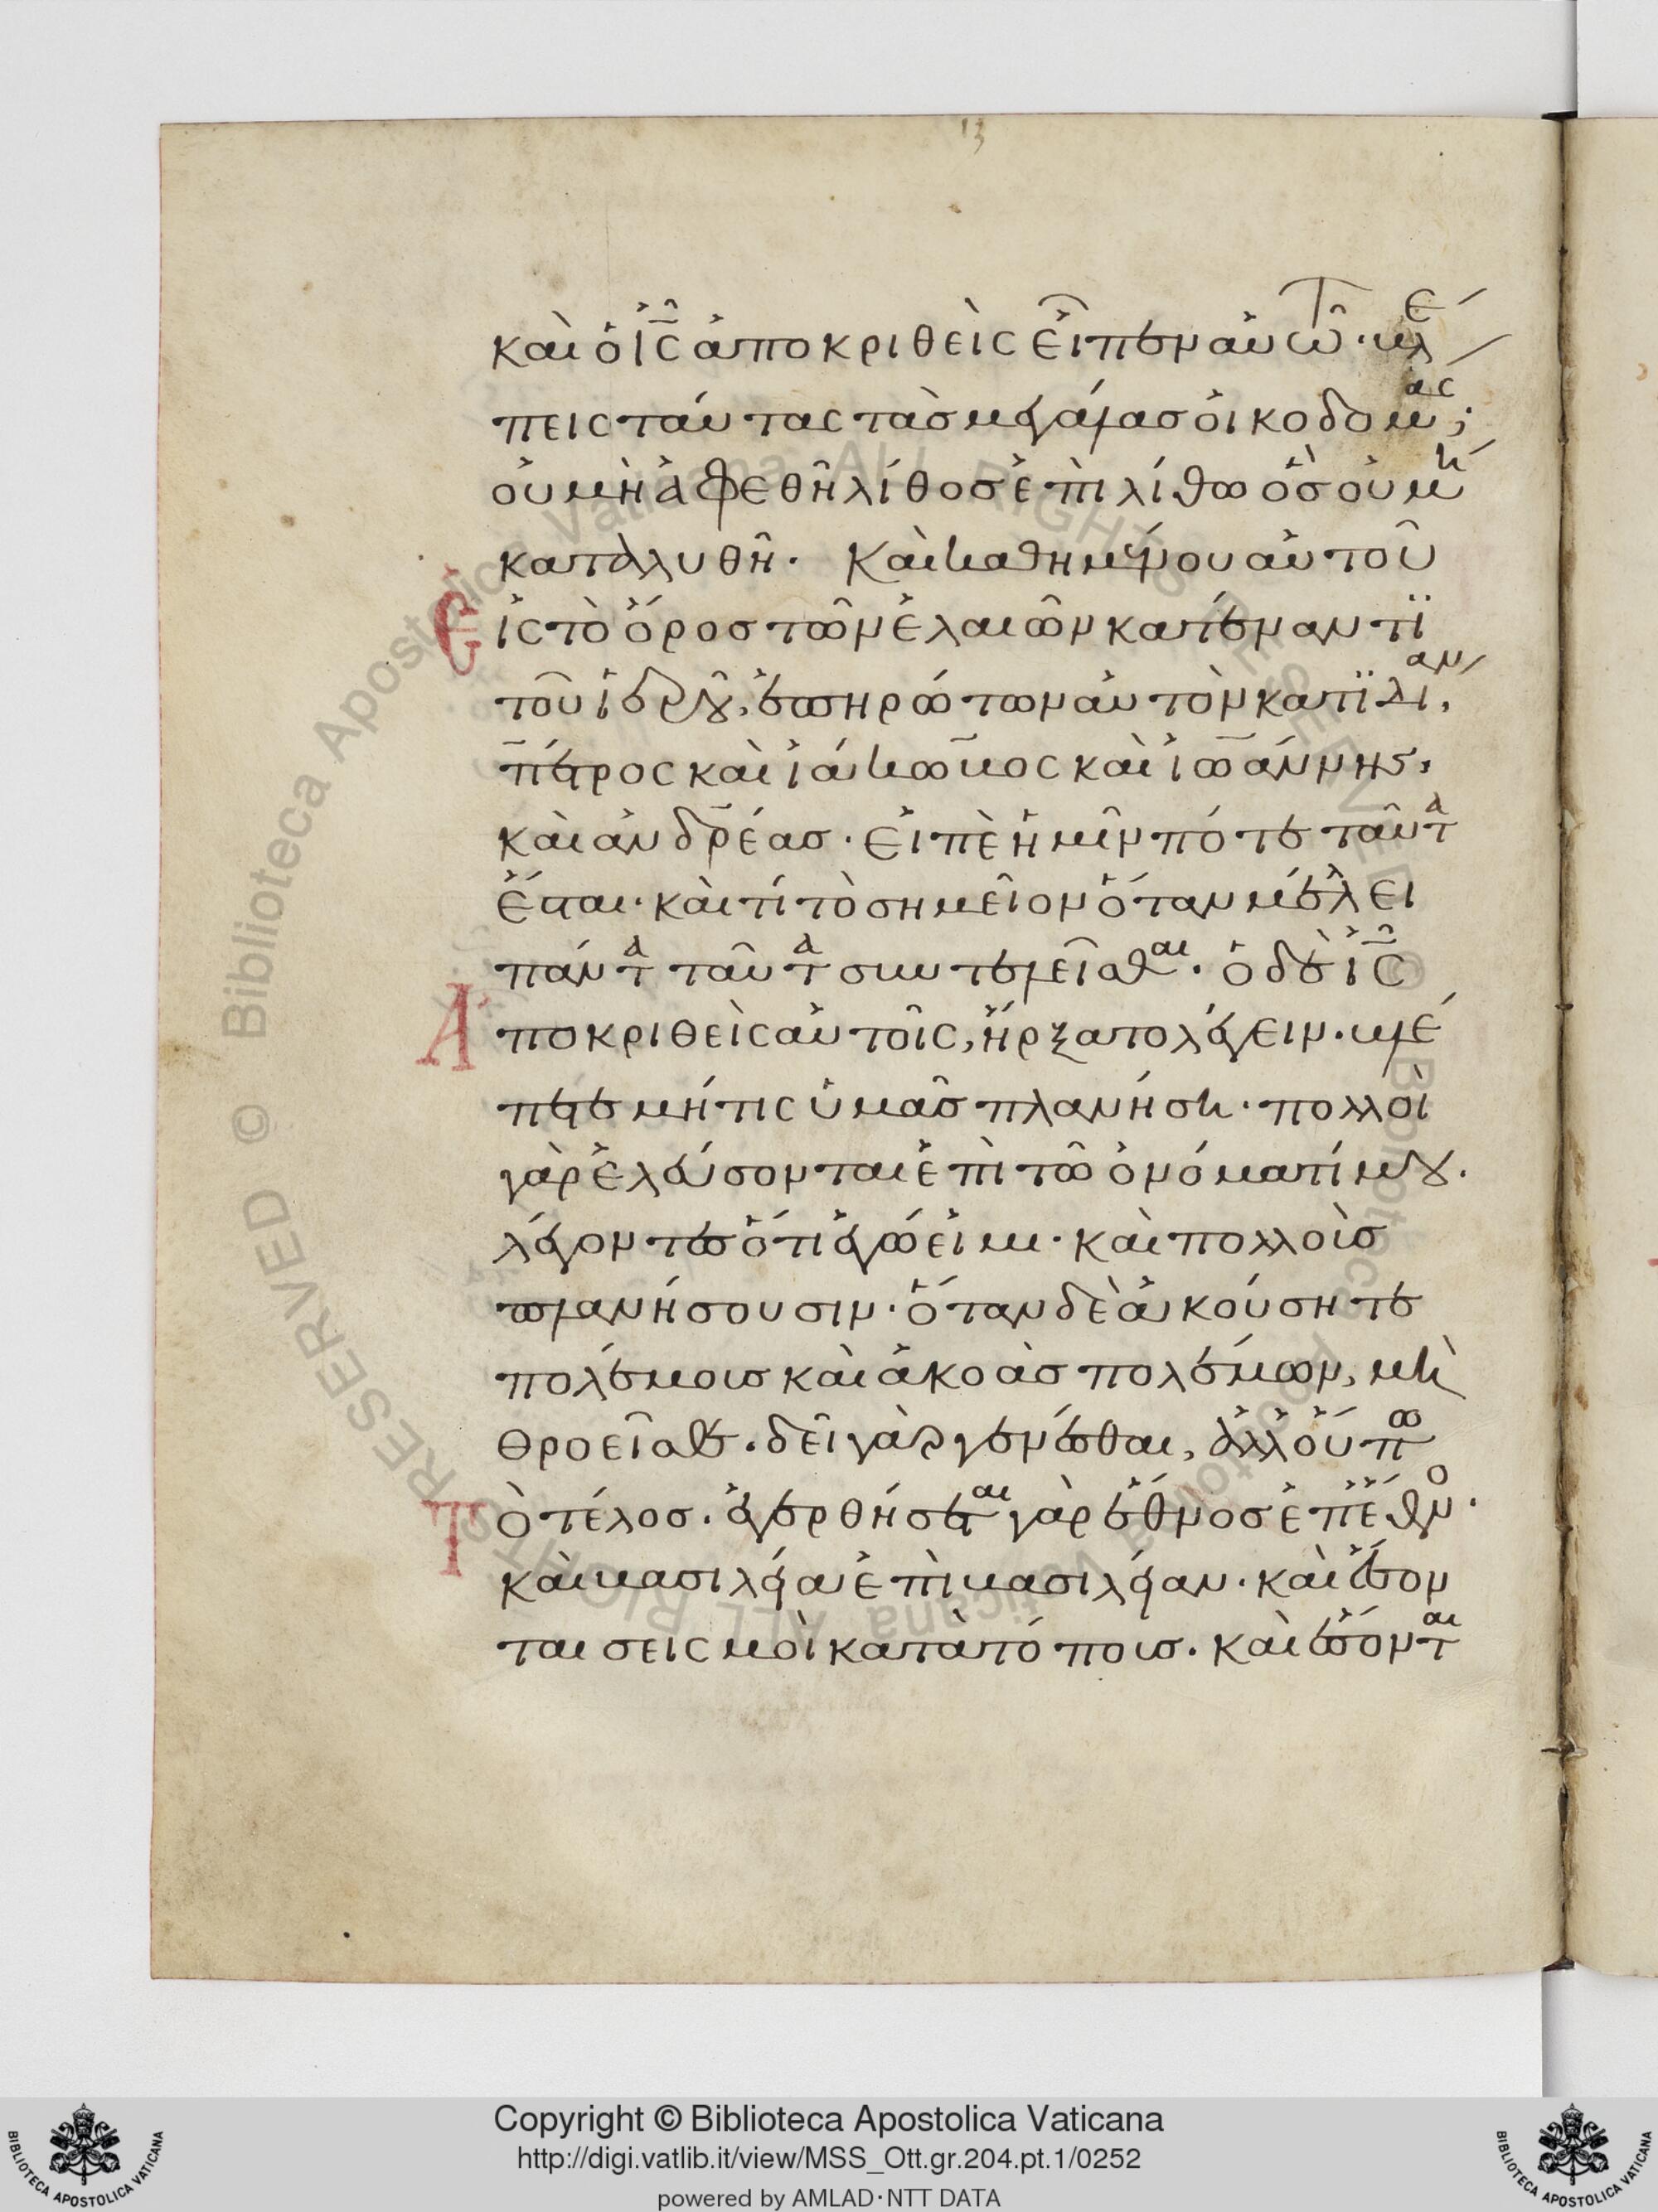 13
καὶ ὁ ἰ̅ς̅ ἀποκριθεὶς εἶπεν αὐτῶ· βλέ
πεις ταύτας τὰς μεγάλας οἰκοδομάς;
οὐ μὴ ἀφεθῆ λίθος ἐπὶ λίθω ὃς οὐ μή
καταλυθῆ. Καὶ καθημένου αὐτοῦ
Εἰς τὸ ὄρος τῶν ἐλαιῶν κατέναντϊ
τοῦ ἱεροῦ, ἐπηρώτων αὐτὸν κατϊδίαν,
πέτρος καὶ ἰάκωβος καὶ ἰωάννης,
καὶ ἀνδρέας· εἰπὲ ἡμῖν πότε ταῦτα
ἔσται· καὶ τί τὸ σημεῖον ὅταν μέλλει
πάντα ταῦτα συντελεῖσθαι· ὁ δὲ ἰ̅ς̅
Ἀποκριθεὶς αὐτοῖς, ἤρξατο λέγειν· βλέ
πετε μή τις ὑμᾶς πλανήση· πολλοὶ
γὰρ ἐλεύσονται ἐπὶ τῶ ὀνόματί μου.
λέγοντες ὅτι ἐγώ εἰμι· καὶ πολλοὺς
πλανήσουσιν· ὅταν δὲ ἀκούσητε
πολέμους καὶ ἀκοὰς πολέμων, μὴ
θροεῖσθε· δεῖ γὰρ γενέσθαι, ἀλλ οὔπω
Τὸ τέλος. ἐγερθήσεται γὰρ ἔθνος ἐπὶ ἔθνο.
καὶ βασιλεία ἐπὶ βασιλείαν· καὶ ἔσον
ται σεισμοὶ κατὰ τόπους. καὶ ἔσονται
Copyright © Biblioteca Apostolica Vaticana
http://digi.vatlib.it/view/MSS_Ott.gr.204.pt.1/0252
powered by AMLAD·NTT DATA
BIBLIOTECA APOSTOLICA VATICANA
BIBLIOTECA APOSTOLICA VATICANA